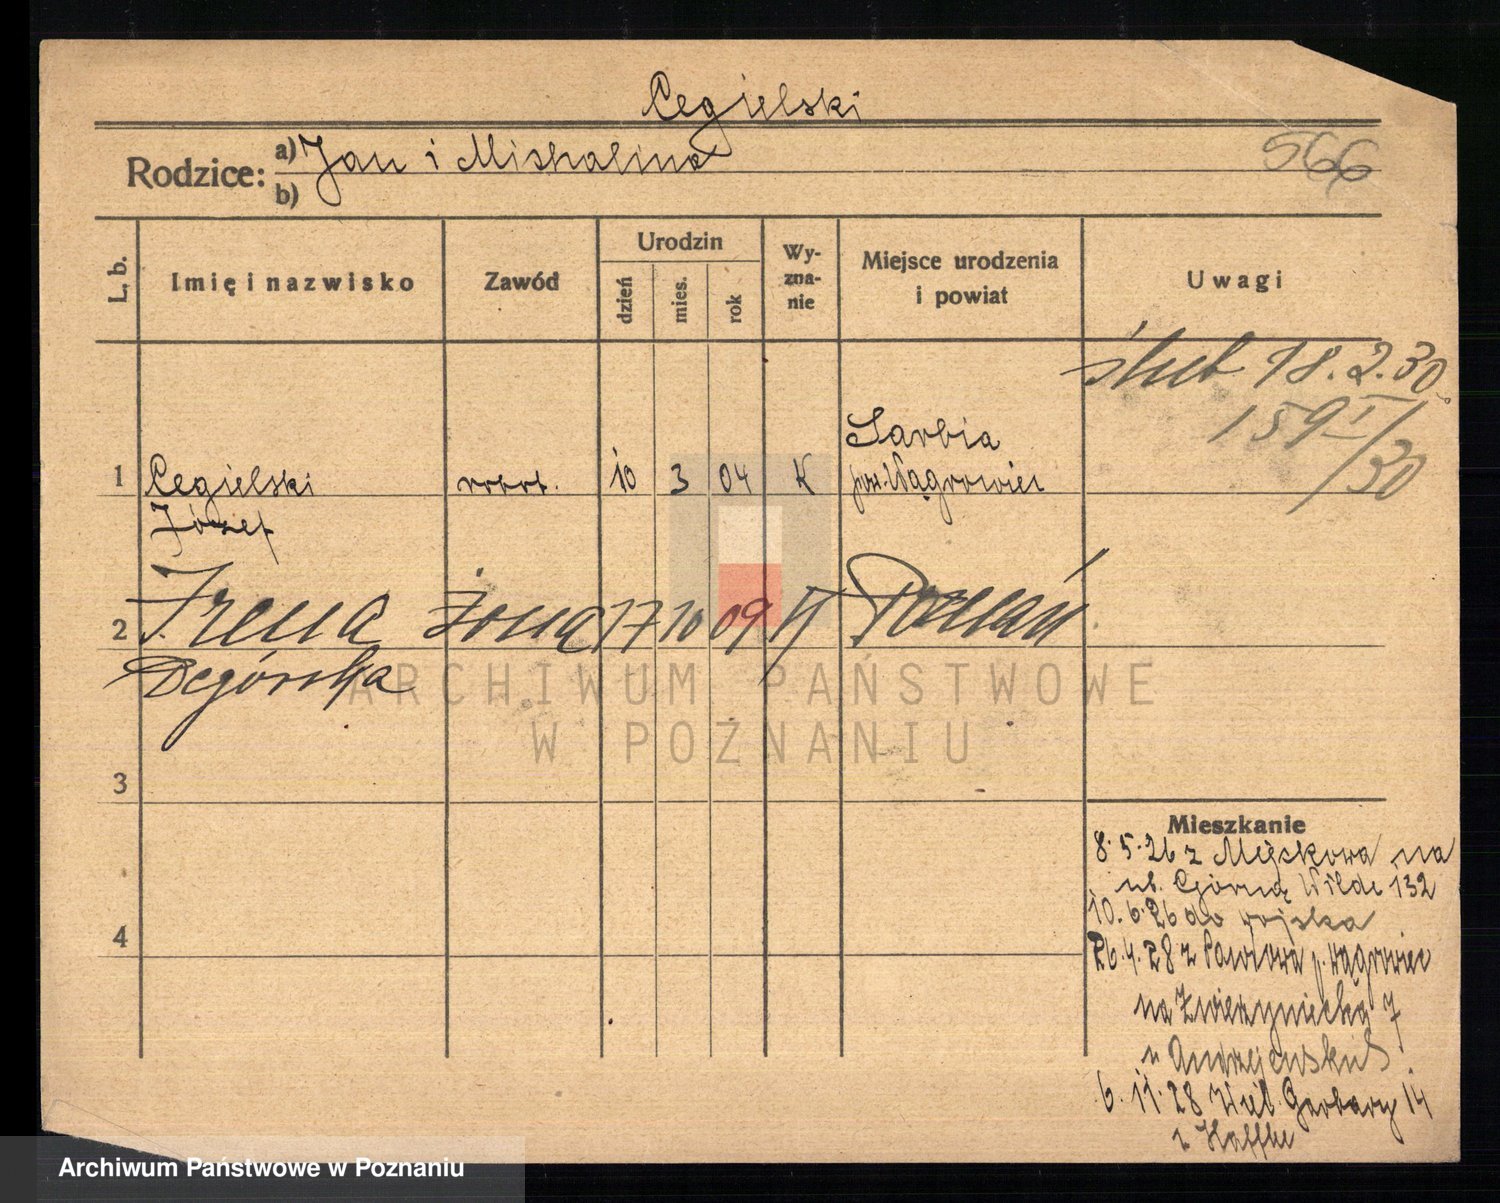 Cegielski
Rodzice: a) Jan i Michalina
b)
566
L. b. Imię i nazwisko Zawód Urodzin dzień mies. rok Wy-zna-nie Miejsce urodzenia i powiat Uwagi
ślub 18.2.30.
159 I/30
1 Cegielski robot. 10 3 04 K Sarbia
pow. Wągrowiec
Józef
2 Irena żona 17 10 09 K Poznań
Degórska
3
4
Mieszkanie
8.5.26 z Mejskowa na
ul. Górną Wildę 132
10.6.26 do wojska
26.4.28 z Pawłowa p. Wągrowiec
na Zwierzyniecką 7
u Andrzejewskich
6.11.28 Wiel. Garbary 14
ARCHIWUM PAŃSTWOWE
W POZNANIU
Archiwum Państwowe w Poznaniu